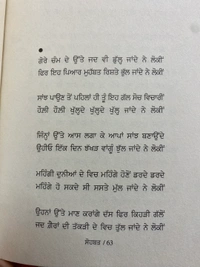 ਗੋਰੇ ਚੰਮ ਦੇ ਉੱਤੇ ਜਦ ਵੀ ਡੁੱਲ੍ਹ ਜਾਂਦੇ ਨੇ ਲੋਕੀਂ
ਫਿਰ ਇਹ ਪਿਆਰ ਮੁਹੱਬਤ ਰਿਸ਼ਤੇ ਭੁੱਲ ਜਾਂਦੇ ਨੇ ਲੋਕੀਂ
ਸਾਂਝ ਪਾਉਣ ਤੋਂ ਪਹਿਲਾਂ ਹੀ ਤੂੰ ਇਹ ਗੱਲ ਸੋਚ ਵਿਚਾਰੀਂ
ਹੌਲੀ ਹੌਲੀ ਖੁੱਲ੍ਹਦੇ ਖੁੱਲ੍ਹਦੇ ਖੁੱਲ੍ਹ ਜਾਂਦੇ ਨੇ ਲੋਕੀਂ
ਜਿੰਨ੍ਹਾਂ ਉੱਤੇ ਆਸ ਲਗਾ ਕੇ ਆਪਾਂ ਸਾਂਝ ਬਣਾਉਂਦੇ
ਉਹੀਓ ਇੱਕ ਦਿਨ ਝੱਖੜ ਵਾਂਗੂੰ ਝੁੱਲ ਜਾਂਦੇ ਨੇ ਲੋਕੀਂ
ਮਹਿੰਗੀ ਦੁਨੀਆਂ ਦੇ ਵਿਚ ਮਹਿੰਗੇ ਹੋਣੋਂ ਡਰਦੇ ਡਰਦੇ
ਮਹਿੰਗੇ ਹੋ ਸਕਦੇ ਸੀ ਸਸਤੇ ਮੁੱਲ ਜਾਂਦੇ ਨੇ ਲੋਕੀਂ
ਉਹਨਾਂ ਉੱਤੇ ਮਾਣ ਕਰਾਂਗੇ ਦੱਸ ਫਿਰ ਕਿਹੜੀ ਗੱਲੋਂ
ਜਦ ਗ਼ੈਰਾਂ ਦੀ ਤੱਕੜੀ ਦੇ ਵਿਚ ਤੁੱਲ ਜਾਂਦੇ ਨੇ ਲੋਕੀਂ
/ 63